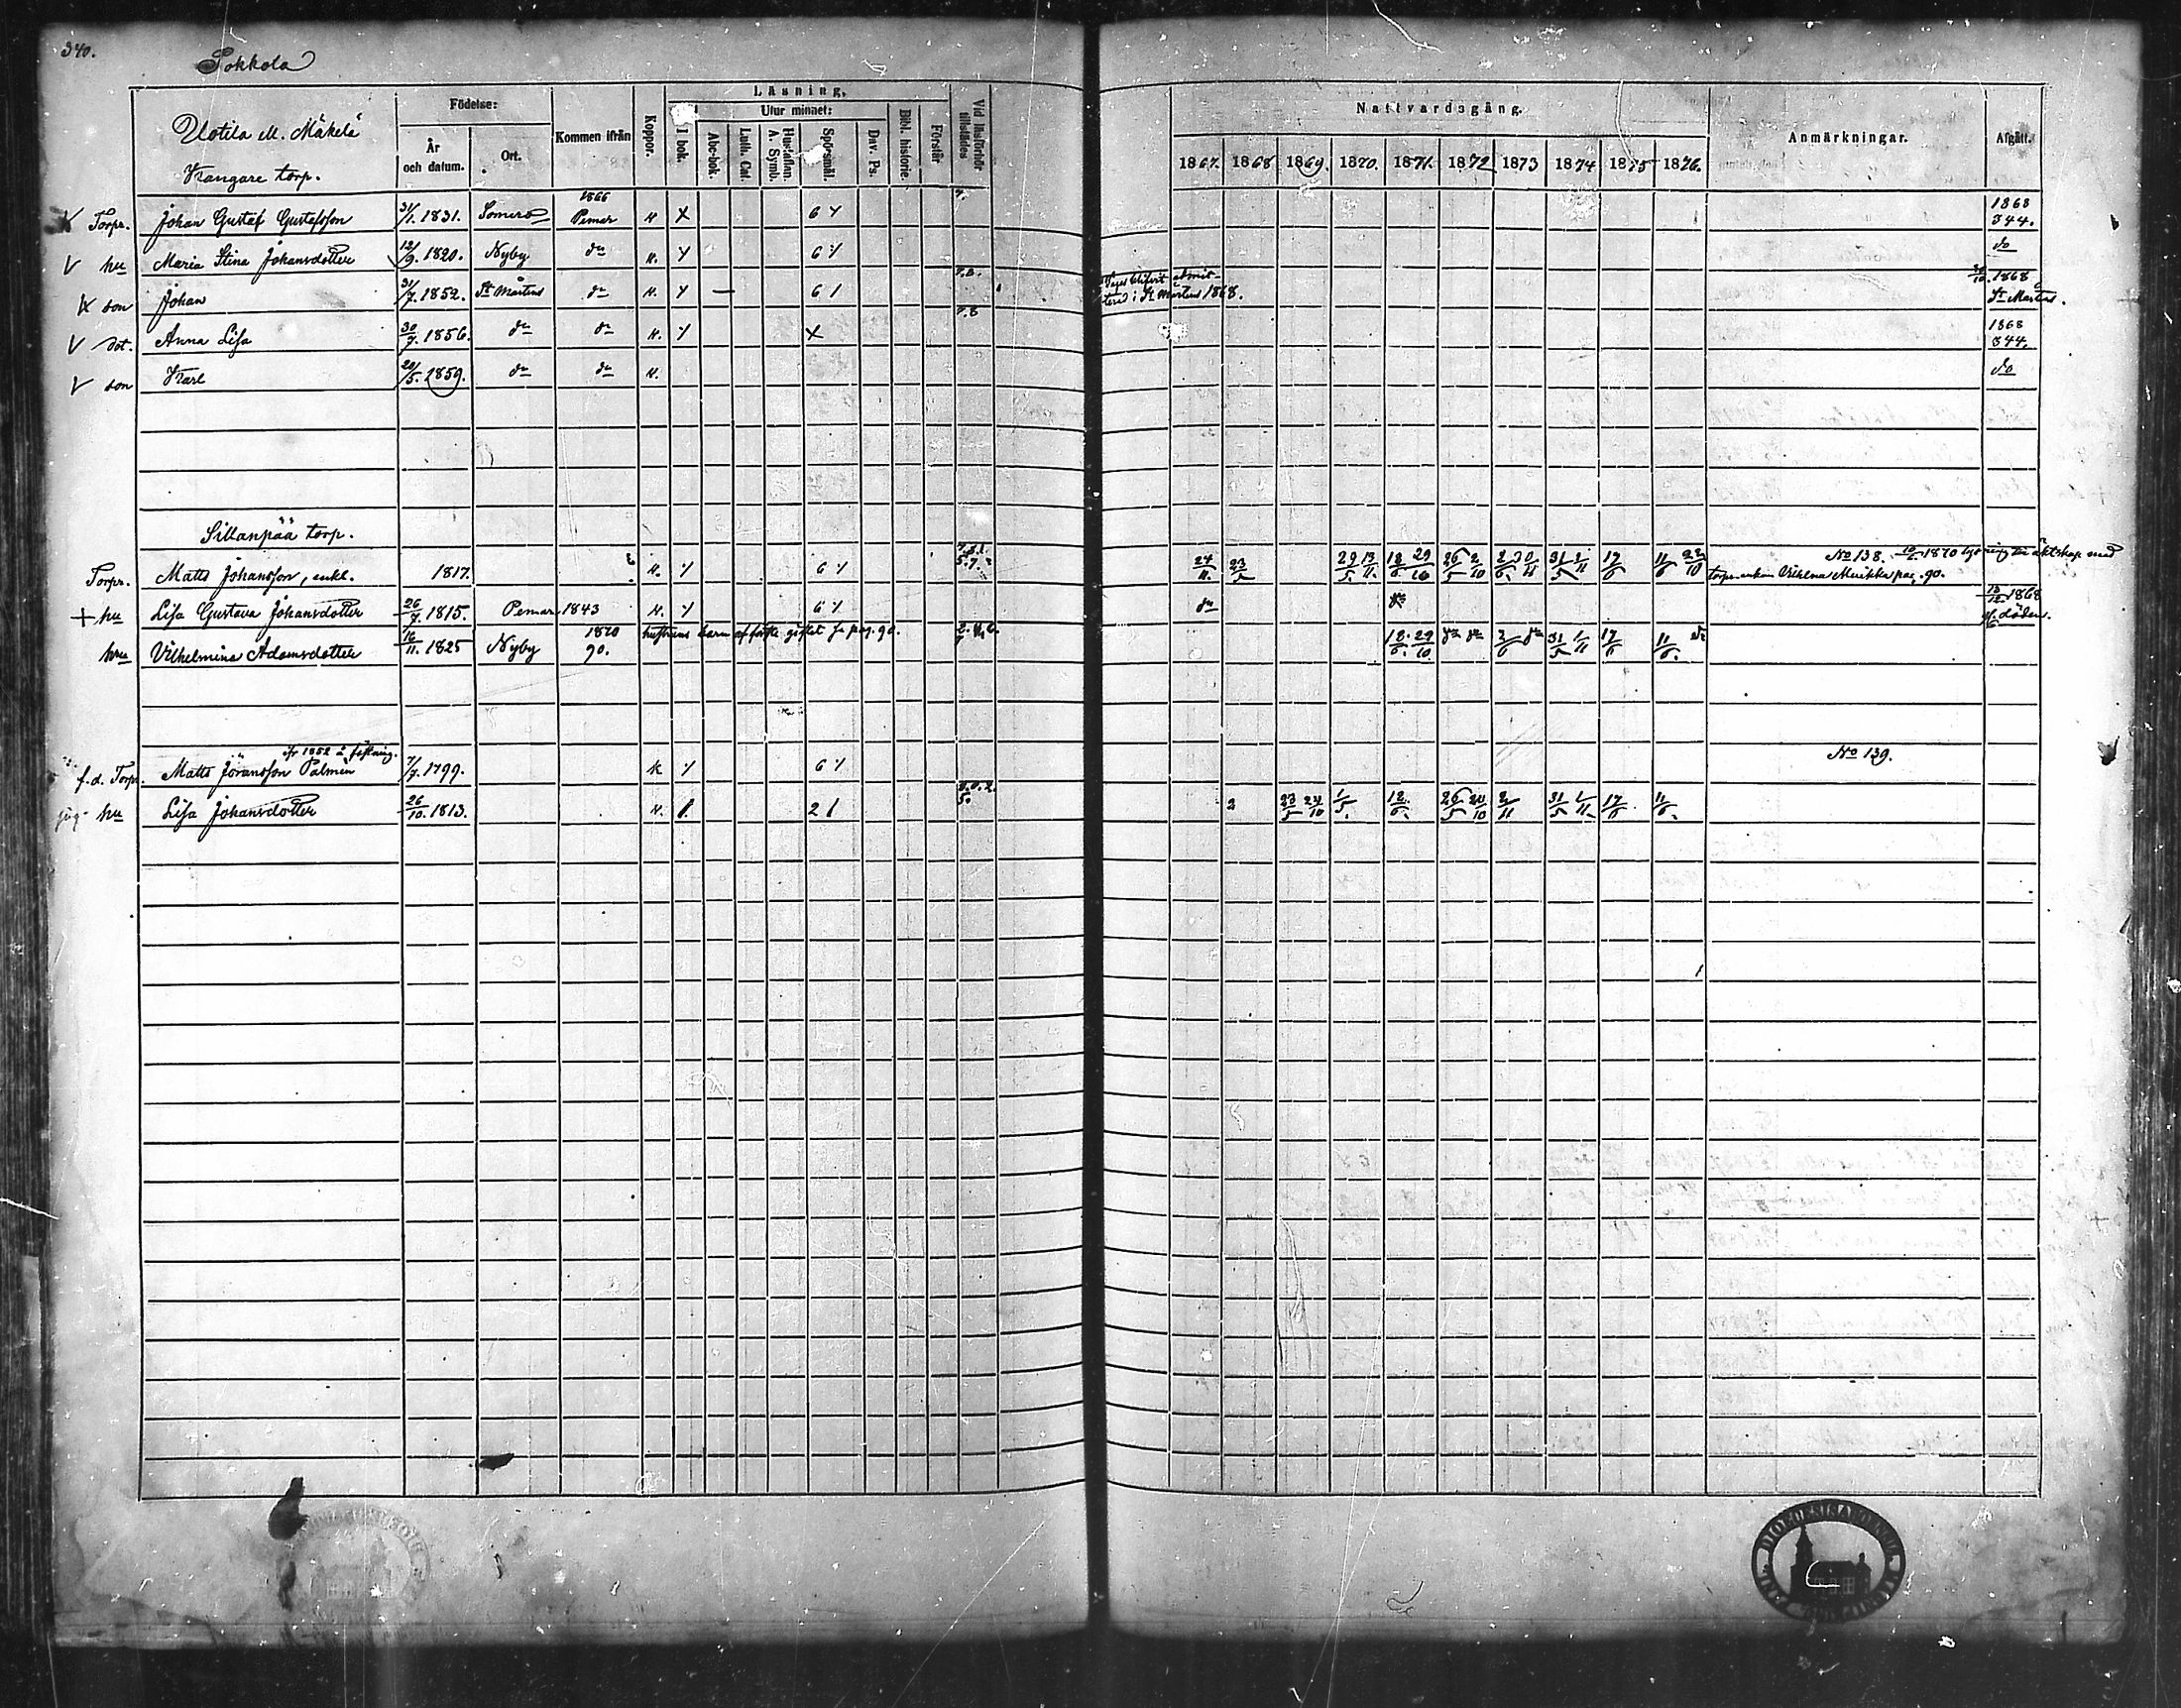 340.
Pokkola
Uotila M. Mäkelä
Krangare torp.
Födelse:
År och datum.
Ort.
Kommen ifrån
Koppor.
Läsning.
I bok.
Utur minnet:
Abc-bok.
Luth. Cat.
Hustaflan. A. Symb.
Spörsmål.
Dav. Ps.
Bibl. historie.
Förstår
Vid läsförhör tillstädes
Nattvardsgång.
1867. 1868 1869. 1870. 1871. 1872 1873 1874 1875 1876.
Anmärkningar.
Afgått.
Torpr. Johan Gustaf Gustafsson 31/1. 1831. Somero 1866 Pemar K. X 6 Y 7. 1868 344.
V hu Maria Stina Johansdotter 12/9. 1820. Nyby do K. Y 6 Y do
son Johan 31/7. 1852. St Mårtens do K. Y — 6 1 admitterad i St Martens 1868. 30/10. 1868 St Martens.
V dot. Anna Lisa 30/7. 1856. do do K. Y X 7.8 1868 344.
V son Karl 20/5. 1859. do do K. do
Sillanpää torp.
Torpr. Matts Johansson, enkl. 1817. K. Y 6 Y 24/11. 23/5 29/5 13/11. 18/6 29/10 26/5 2/10 31/5 1/11 17/6 11/6 22/10 No 138. 1870 till äktskap med
torp. enkan Vilhlna Merikka pag. 90.
+ hu Lisa Gustava Johansdotter 26/7. 1815. Pemar 1843 K. Y 6 Y do 13/12 1868 af döden.
hu Vilhelmina Adamsdotter 16/11. 1825 Nyby 1870 90. hustruns barn af förste giftet se pag. 90. 18/6. 29/10 do do 2/6 do 31/5 1/11 17/6 11/6. do
fr 1852 å fästning.
f.d. Torp. Matts Jöransson Palmén 7/7. 1799. K Y 6 Y No 139.
hu Lisa Johansdotter 26/10. 1813. K. 1. 2 1 2 23/5 24/10 1/5. 18/6. 26/5 24/10 31/5 1/11. 17/6 11/6.